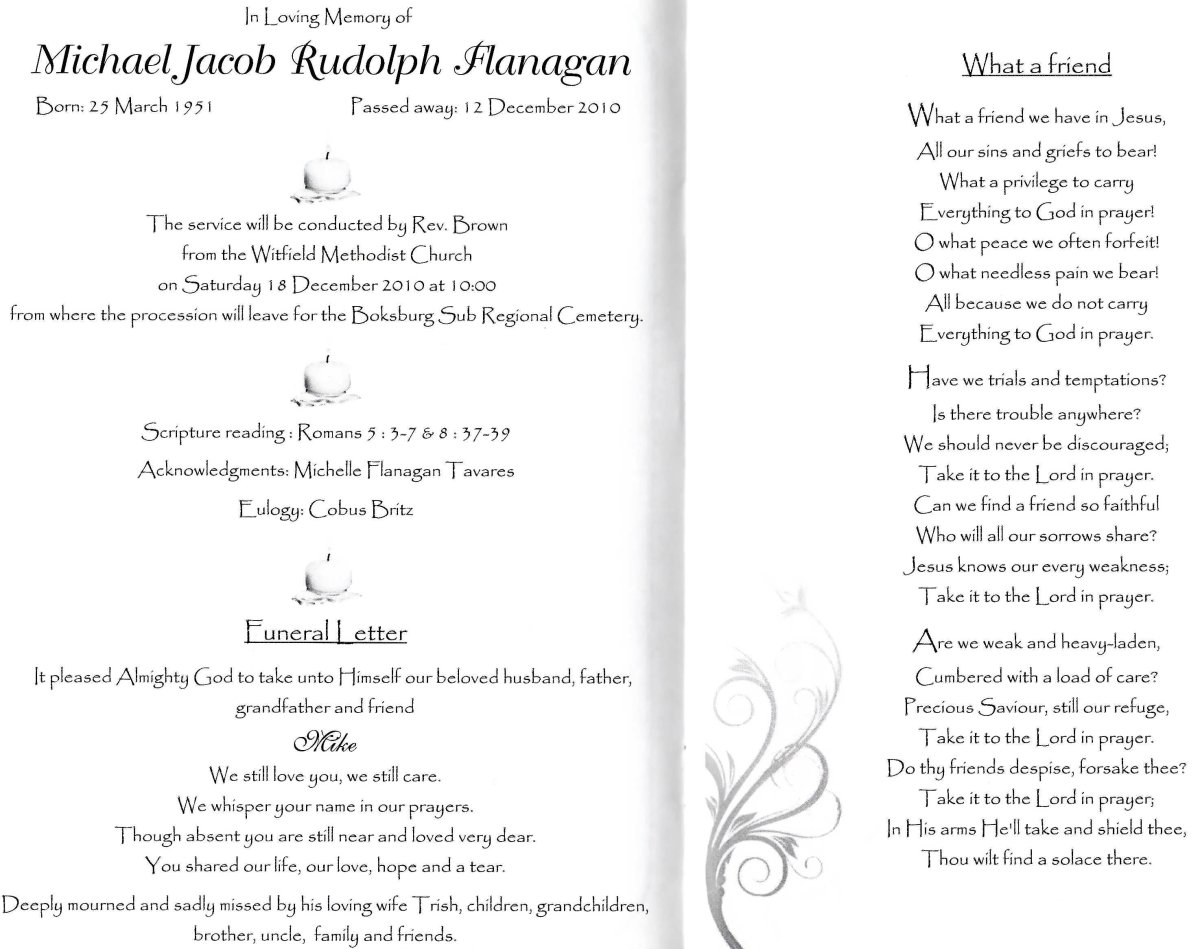 In Loving Memory of
Michael Jacob Rudolph Flanagan
Born: 25 March 1951 Passed away: 12 December 2010
The service will be conducted by Rev. Brown
from the Witfield Methodist Church
on Saturday 18 December 2010 at 10:00
from where the procession will leave for the Boksburg Sub Regional Cemetery.
Scripture reading : Romans 5 : 3-7 & 8 : 37-39
Acknowledgments: Michelle Flanagan Tavares
Eulogy: Cobus Britz
Funeral Letter
It pleased Almighty God to take unto Himself our beloved husband, father,
grandfather and friend
Mike
We still love you, we still care.
We whisper your name in our prayers.
Though absent you are still near and loved very dear.
You shared our life, our love, hope and a tear.
Deeply mourned and sadly missed by his loving wife Trish, children, grandchildren,
brother, uncle, family and friends.
What a friend
What a friend we have in Jesus,
All our sins and griefs to bear!
What a privilege to carry
Everything to God in prayer!
O what peace we often forfeit!
O what needless pain we bear!
All because we do not carry
Everything to God in prayer.
Have we trials and temptations?
Is there trouble anywhere?
We should never be discouraged;
Take it to the Lord in prayer.
Can we find a friend so faithful
Who will all our sorrows share?
Jesus knows our every weakness;
Take it to the Lord in prayer.
Are we weak and heavy-laden,
Cumbered with a load of care?
Precious Saviour, still our refuge,
Take it to the Lord in prayer.
Do thy friends despise, forsake thee?
Take it to the Lord in prayer;
In His arms He'll take and shield thee,
Thou wilt find a solace there.